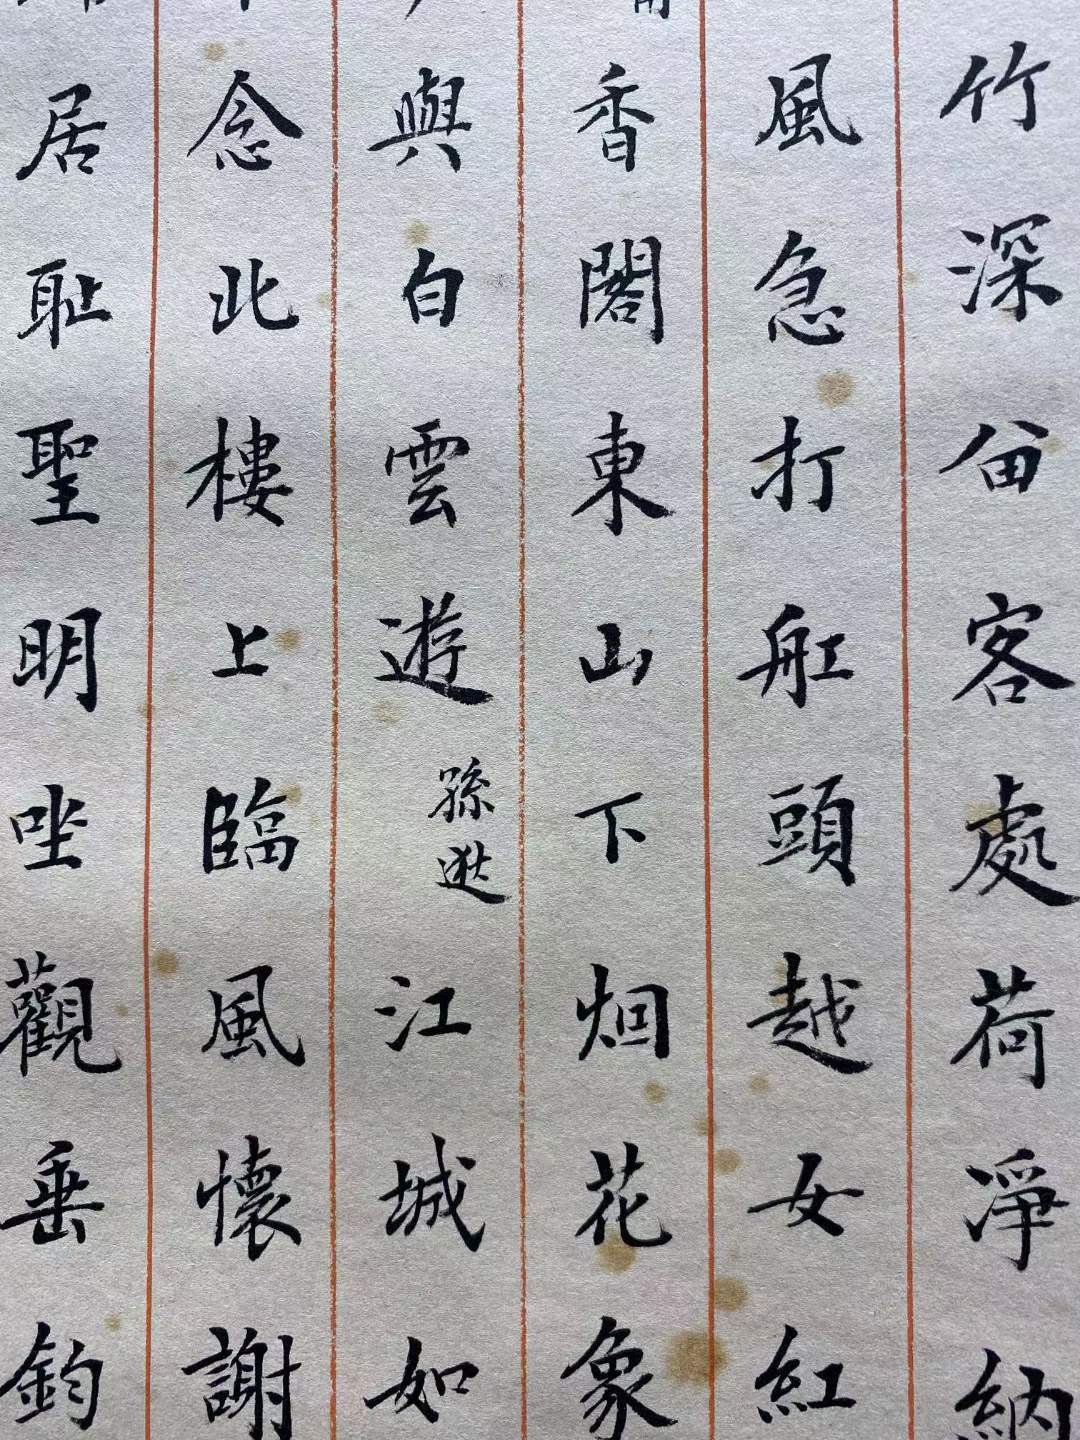 竹深留客處荷淨納
風急打舡頭越女紅
香閣東山下烟花象
與白雲遊
孫逖
江城如
念北樓上臨風懷謝
居耻聖明坐觀垂釣